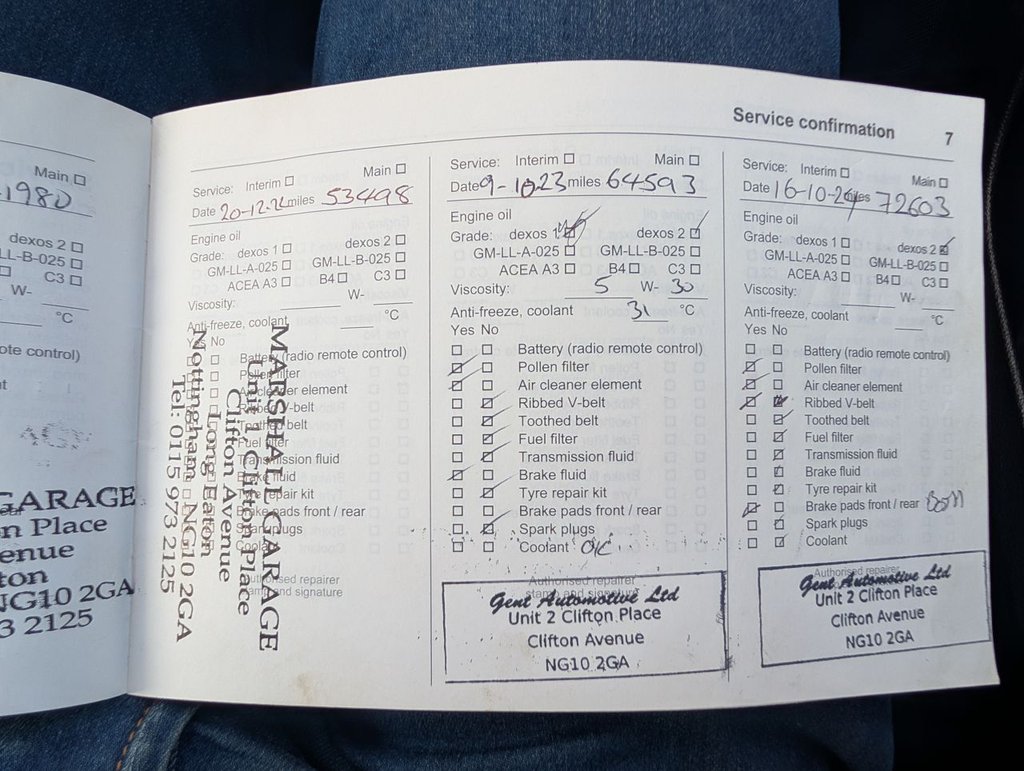 Service confirmation 7
Main
1980
dexos 2
LL-B-025
C3
W-
°C
ote control)
GARAGE
n Place
enue
ton
NG10 2GA
3 2125
Service: Interim Main
Date 20-12-22 miles 53498
Engine oil
Grade: dexos 1 dexos 2
GM-LL-A-025 GM-LL-B-025
ACEA A3 B4 C3
Viscosity: W-
Anti-freeze, coolant °C
Yes No
Battery (radio remote control)
Pollen filter
Air cleaner element
Ribbed V-belt
Toothed belt
Fuel filter
Transmission fluid
Brake fluid
Tyre repair kit
Brake pads front / rear
Spark plugs
Coolant
Authorised repairer
stamp and signature
MARSHALL GARAGE
Unit 2 Clifton Place
Clifton Avenue
Long Eaton
Nottingham NG10 2GA
Tel: 0115 973 2125
Service: Interim Main
Date 9-10-23 miles 64593
Engine oil
Grade: dexos 1 dexos 2
GM-LL-A-025 GM-LL-B-025
ACEA A3 B4 C3
Viscosity: 5 W- 30
Anti-freeze, coolant 31 °C
Yes No
Battery (radio remote control)
Pollen filter
Air cleaner element
Ribbed V-belt
Toothed belt
Fuel filter
Transmission fluid
Brake fluid
Tyre repair kit
Brake pads front / rear
Spark plugs
Coolant OK.
Authorised repairer
stamp and signature
Gent Automotive Ltd
Unit 2 Clifton Place
Clifton Avenue
NG10 2GA
Service: Interim Main
Date 16-10-24 miles 72603
Engine oil
Grade: dexos 1 dexos 2
GM-LL-A-025 GM-LL-B-025
ACEA A3 B4 C3
Viscosity: W-
Anti-freeze, coolant °C
Yes No
Battery (radio remote control)
Pollen filter
Air cleaner element
Ribbed V-belt
Toothed belt
Fuel filter
Transmission fluid
Brake fluid
Tyre repair kit
Brake pads front / rear
Spark plugs
Coolant
Authorised repairer
Gent Automotive Ltd
Unit 2 Clifton Place
Clifton Avenue
NG10 2GA